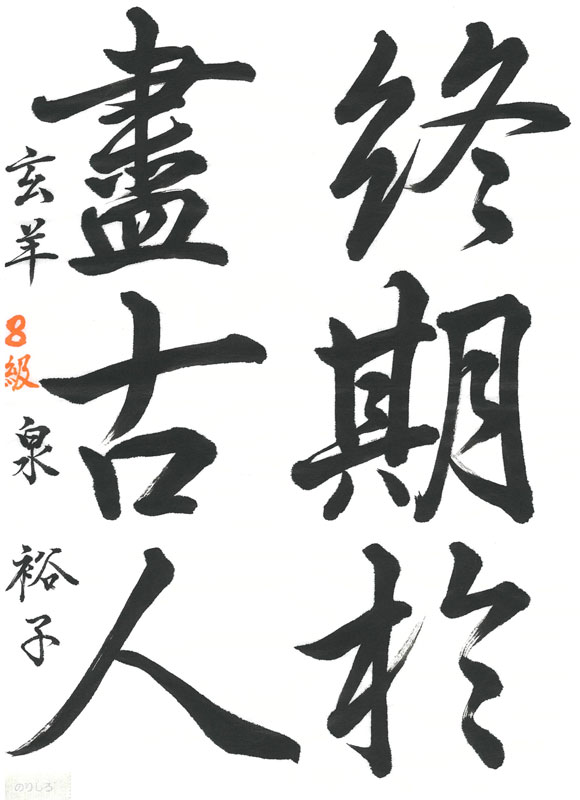 終期於
盡古人
玄羊 8級 泉 裕子
のりしろ